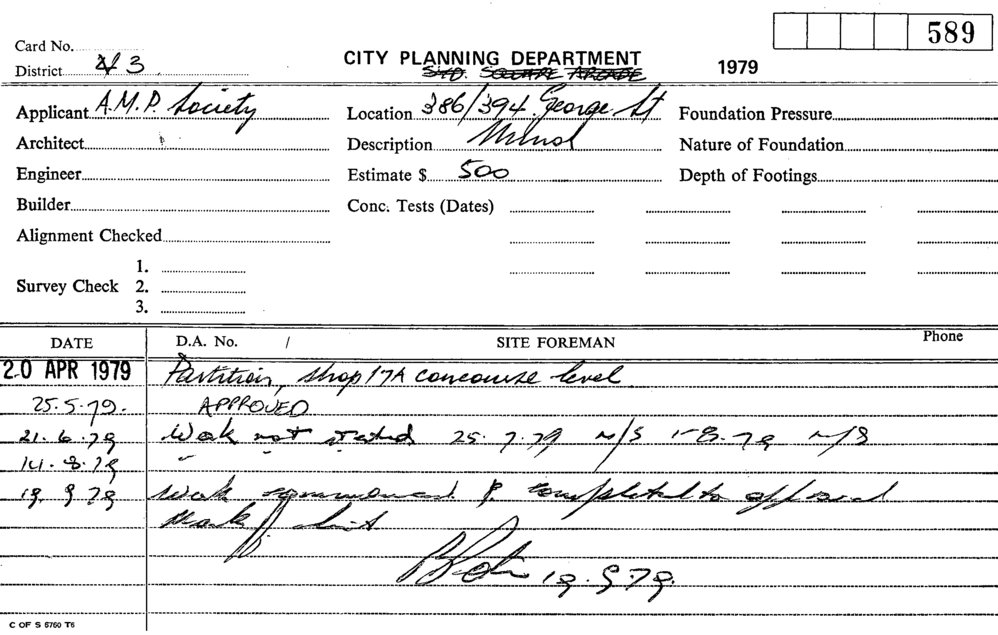 589
Card No.
CITY PLANNING DEPARTMENT
District 3
SYD. SQUARE ARCADE
1979
Applicant A.M.P. Society
Location 386/394 George St
Foundation Pressure
Architect
Description
Nature of Foundation
Engineer
Estimate $ 500
Depth of Footings
Builder
Conc. Tests (Dates)
Alignment Checked
1.
Survey Check 2.
3.
DATE D.A. No. / SITE FOREMAN Phone
20 APR 1979 Partition, shop 17A concourse level
25.5.79. APPROVED
21.6.79 Work not started 25.7.79 N/S 1-8.79 N/S
14.8.79 " " "
19.9.79 Work commenced & completed to approved
19.9.79.
C OF S 5760 T6